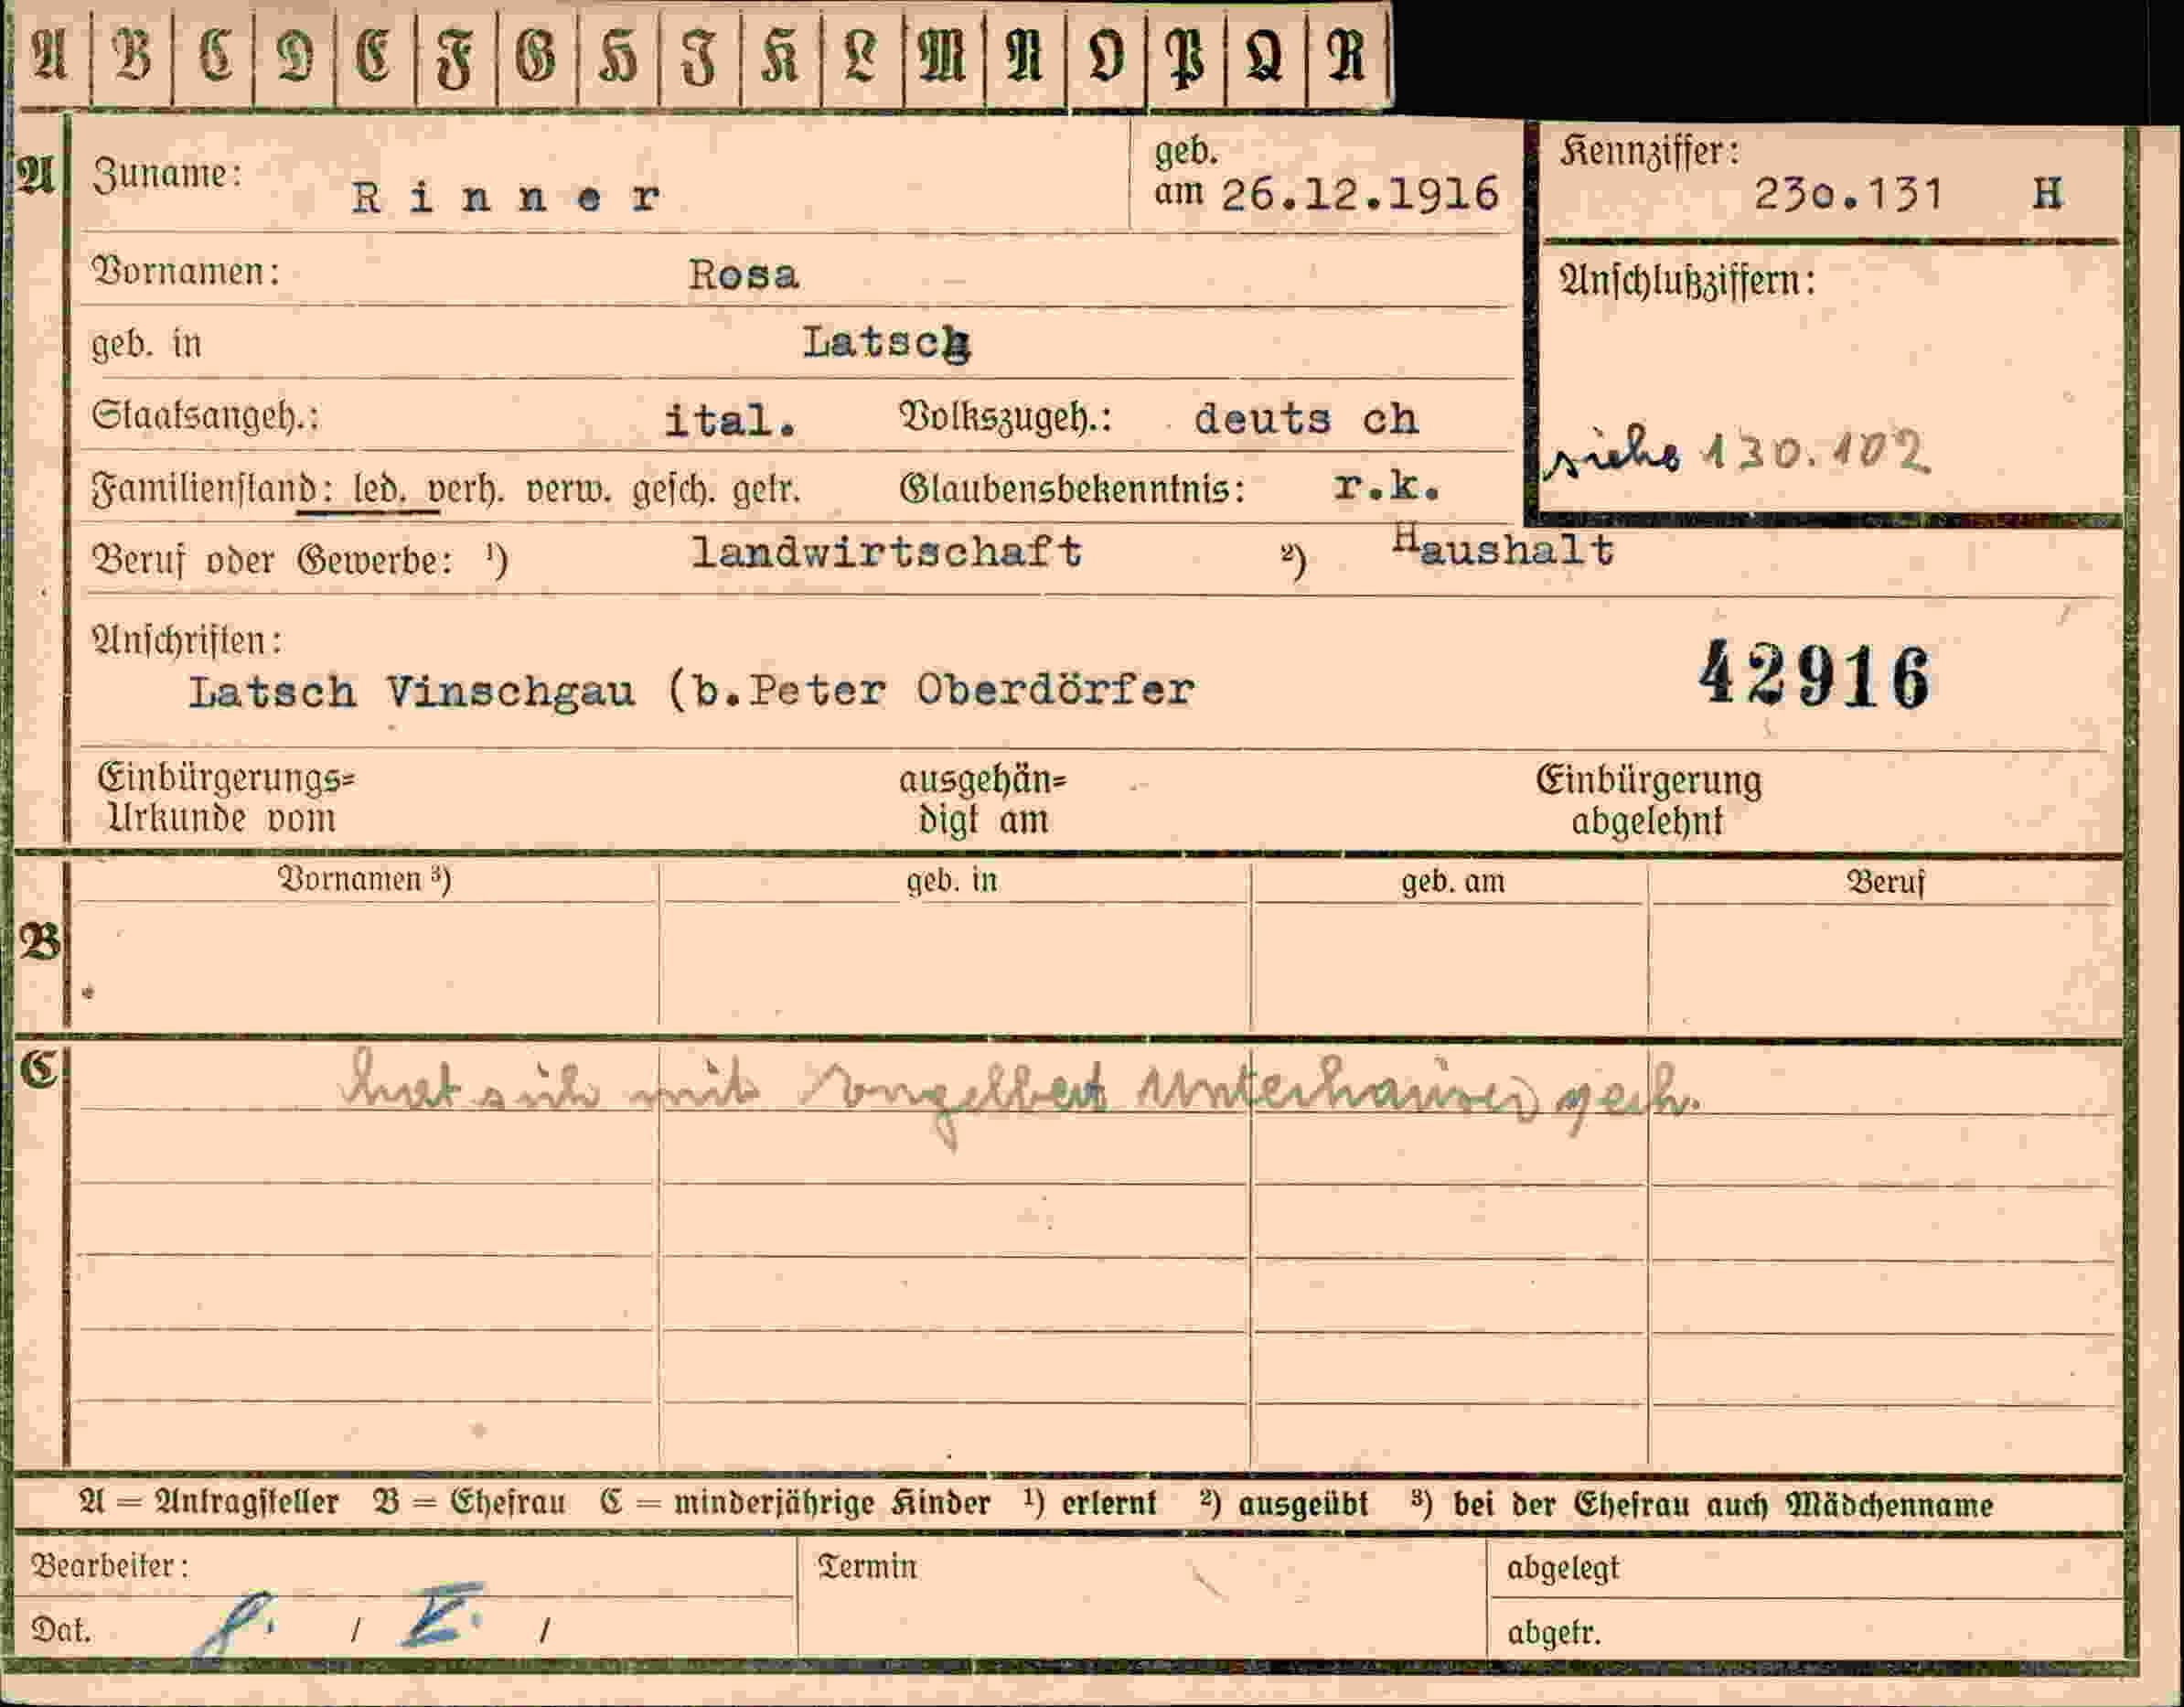 A B C D E F G H I K L M N O P Q R
A
Zuname: Rinner
geb. am 26.12.1916
Kennziffer: 230.131 H
Vornamen: Rosa
Anschlußziffern:
geb. in Latsch
Staatsangeh.: ital. Volkszugeh.: deuts ch
siehe 130.102
Familienstand: led. verh. verw. gesch. getr. Glaubensbekenntnis: r.k.
Beruf oder Gewerbe: ¹) landwirtschaft ²) Haushalt
Anschriften:
Latsch Vinschgau (b.Peter Oberdörfer
42916
Einbürgerungs= ausgehän= Einbürgerung
Urkunde vom digt am abgelehnt
B
Vornamen ³) geb. in geb. am Beruf
C
hat sich mit Engelbert Unterhauser
A = Antragsteller B = Ehefrau C = minderjährige Kinder ¹) erlernt ²) ausgeübt ³) bei der Ehefrau auch Mädchenname
Bearbeiter: Termin abgelegt
Dat. / / abgetr.